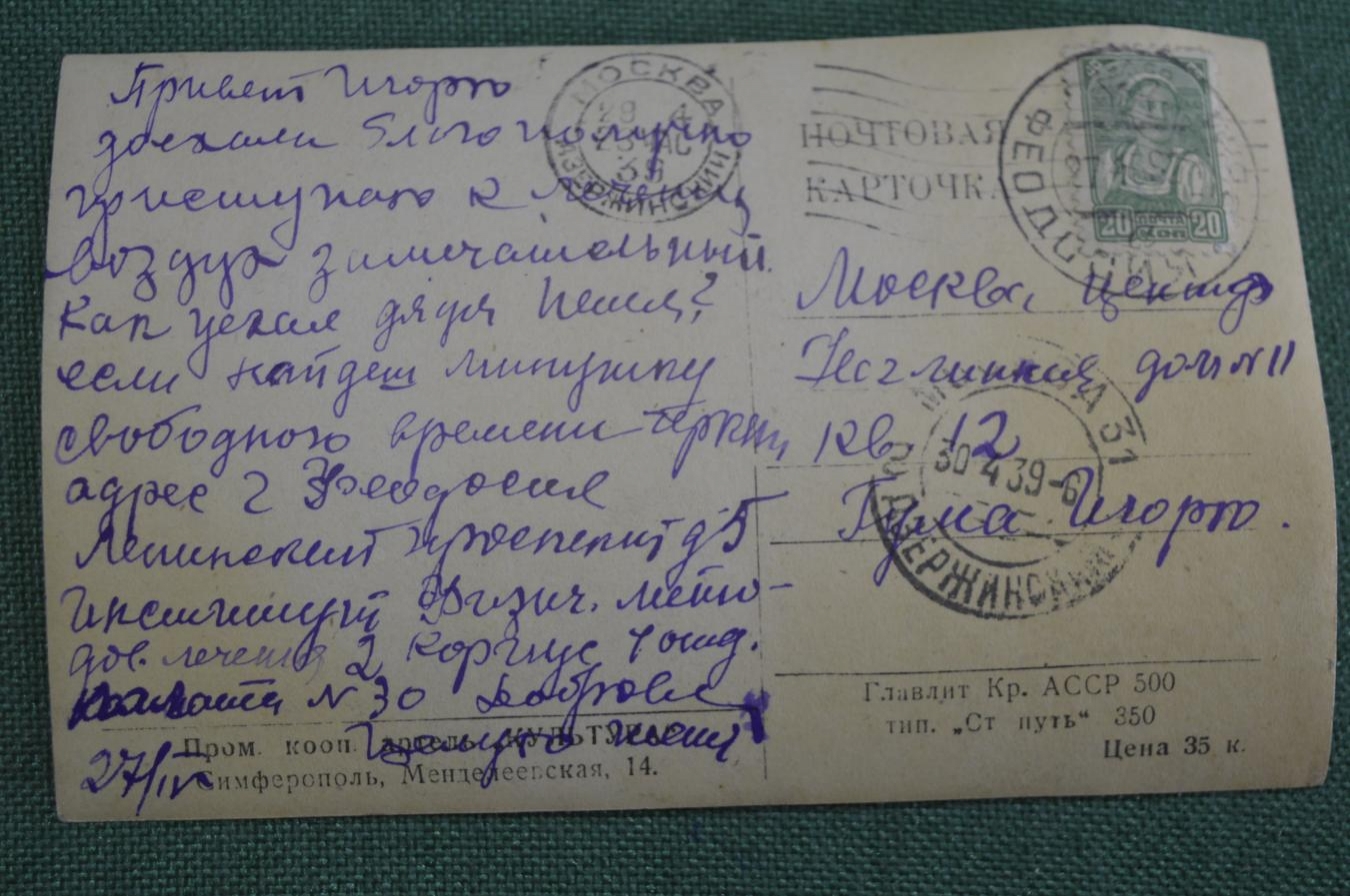 Привет Игорю
доехали благополучно
приступаю к
воздух замечательный.
Как уехал дядя
если найдеш минутку
свободного времени черкни
адрес г Феодосия
Ленинский проспект д 5
институт Физич. мето-
дов лечения 2 корпус 1 отд.
комната N 30
Целую
27/IV
МОСКВА
39
ДЗЕРЖИНСКИЙ
ПОЧТОВАЯ
КАРТОЧКА
ФЕОДОСИЯ
20 ПОЧТА 20
КОП
Москва, Центр
Неглинная дом N 11
кв 12
Игорю.
МОСКВА 31
30 4 39-6
ДЗЕРЖИНСКИЙ
Пром. кооп. артель „КУЛЬТУРА“
Симферополь, Менделеевская, 14.
Главлит Кр. АССР 500
тип. „Ст путь“ 350
Цена 35 к.